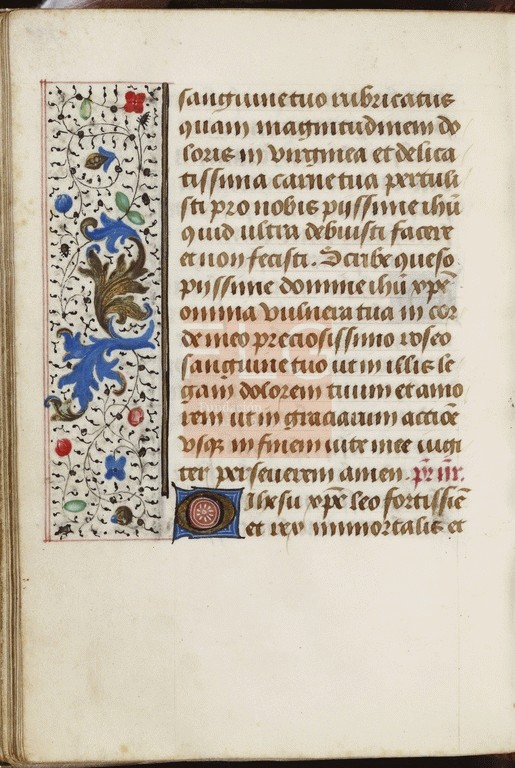 sanguine tuo rubricatus
quam magnitudinem do
loris in virginea et delica
tissima carne tua pertuli
sti pro nobis pijssime ihū
quid ultra debuisti facere
et non fecisti. Scribe queso
pijssime domine ihū xp̄e
omnia vulnera tua in cor
de meo preciosissimo roseo
sanguine tuo ut in illis le
gam dolorem tuum et amo
rem ut in graciarum accōe
vsqꝫ in finem uite mee iugi
ter perseuerem amen. pr̄ nr̄.
O Ihesu xp̄e leo fortissīe
et rex immortalis et